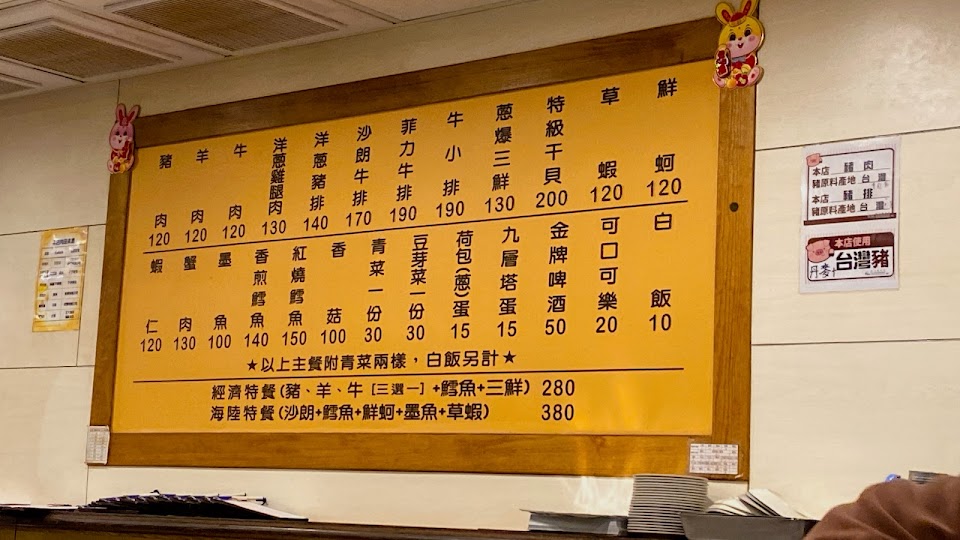 豬肉 120
羊肉 120
牛肉 120
洋蔥雞腿肉 130
洋蔥豬排 140
沙朗牛排 170
菲力牛排 190
牛小排 190
蔥爆三鮮 130
特級干貝 200
草蝦 120
鮮蚵 120
蝦仁 120
蟹肉 130
墨魚 100
香煎鱈魚 140
紅燒鱈魚 150
香菇 100
青菜一份 30
豆芽菜一份 30
荷包(蔥)蛋 15
九層塔蛋 15
金牌啤酒 50
可口可樂 20
白飯 10
★以上主餐附青菜兩樣，白飯另計★
經濟特餐(豬、羊、牛[三選一]+鱈魚+三鮮) 280
海陸特餐(沙朗+鱈魚+鮮蚵+墨魚+草蝦) 380
本店 豬肉
豬原料產地 台灣
本店 豬排
豬原料產地 台灣
本店使用
台灣豬